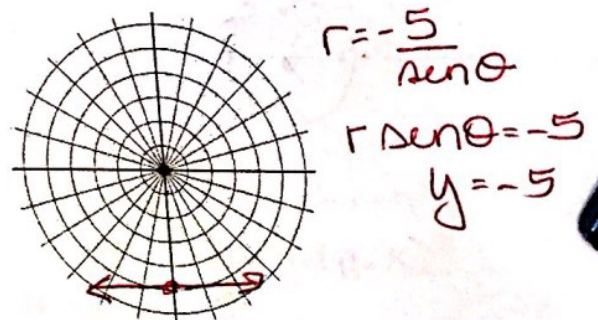 r=-5/senθ
r senθ=-5
y=-5